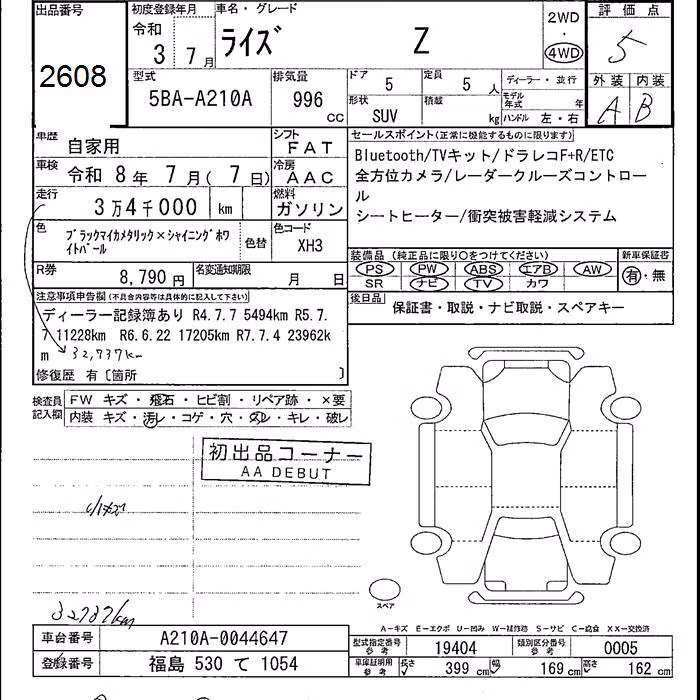 出品番号
2608
初度登録年月
令和
3 7月
車名・グレード
ライズ Z
2WD
・
4WD
評価点
5
外装 内装
A B
型式
5BA-A210A
排気量
996
cc
ドア
5
定員
5人
形状
SUV
積載
kg
ディーラー・並行
モデル
年式 年
ハンドル 左・右
車歴
自家用
シフト
FAT
車検
令和 8年 7月( 7日)
冷房
AAC
走行
3万4千000 km
燃料
ガソリン
色
ブラックマイカメタリック×シャイニングホワ
イトパール
色替
色コード
XH3
R券
8,790円
名変通知期限
月 日
セールスポイント(正常に機能するものに限ります)
Bluetooth/TVキット/ドラレコF+R/ETC
全方位カメラ/レーダークルーズコントロー
ル
シートヒーター/衝突被害軽減システム
装備品 (純正品に限り○をつけてください)
PS PW ABS エアB AW
SR ナビ TV カワ
新車保証書
有・無
後日品
保証書・取説・ナビ取説・スペアキー
注意事項申告欄(不具合内容等は具体的に記入して下さい)
ディーラー記録簿あり R4.7.7 5494km R5.7.
7 11228km R6.6.22 17205km R7.7.4 23962k
m 32,737km
修復歴 有〔箇所 〕
検査員
記入欄
FW キズ・飛石・ヒビ割・リペア跡・×要
内装 キズ・汚レ・コゲ・穴・スレ・キレ・破レ
初出品コーナー
AA DEBUT
小キズ
32737km
スペア
A－キズ E－エクボ U－凹み W－補修跡 S－サビ C－腐食 XX－交換済
車台番号
A210A-0044647
登録番号
福島 530 て 1054
型式指定番号
参考
19404
類別区分番号
参考
0005
車庫証明用
参考
長さ
399 cm
幅
169 cm
高さ
162 cm